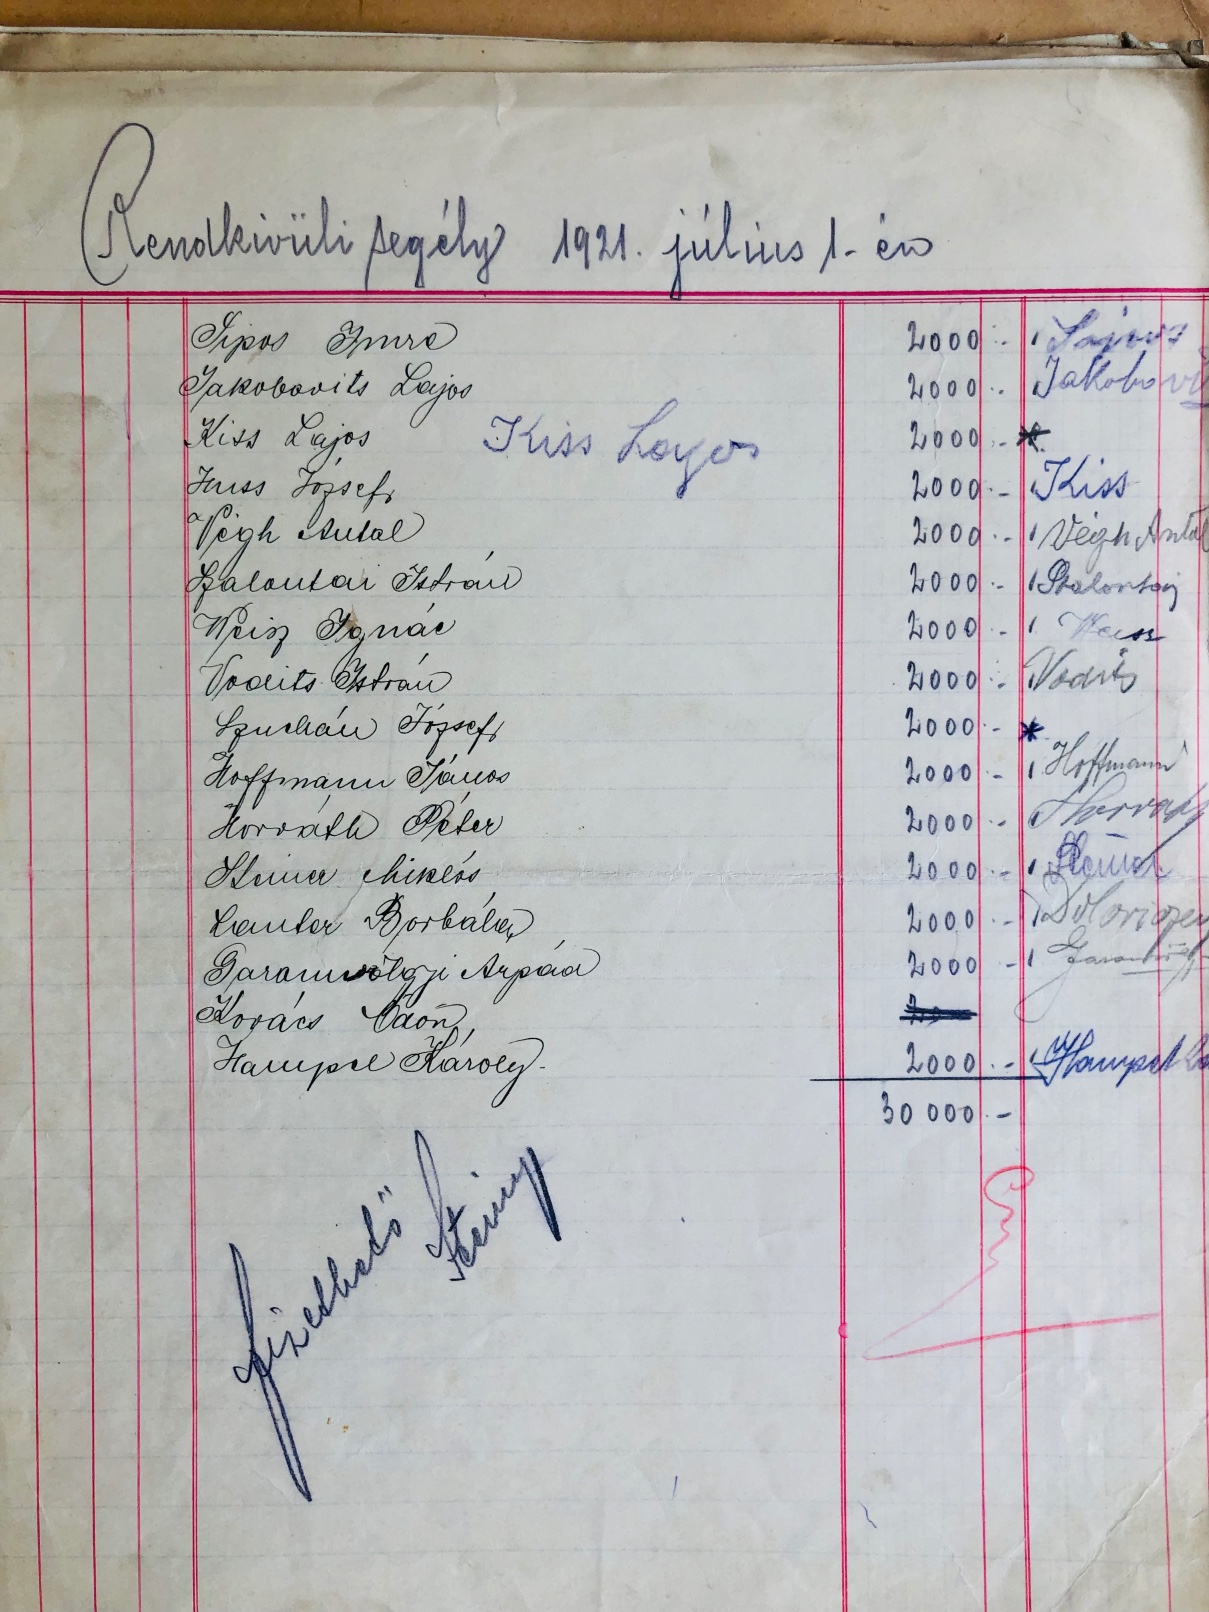 Rendkivüli segély 1921. július 1.-én
Sipos Imre 2000.-
Jakobovits Lajos 2000.- Jakobovits
Kiss Lajos Kiss Lajos 2000.-
József 2000.- Kiss
Végh Antal 2000.- Végh Antal
Szalontai István 2000.- Szalontai
Weisz Ignác 2000.- Weisz
Vodits István 2000.- Vodits
Szuchán József 2000.-
Hoffmann János 2000.- Hoffmann
Horváth Péter 2000.- Horváth
Steiner Miklós 2000.- Steiner
Lauter Borbála 2000.-
Garamvölgyi Árpád 2000.- Garamvölgyi
Kovács Ödön
Hampel Károly. 2000.- Hampel
30 000.-
fizethető